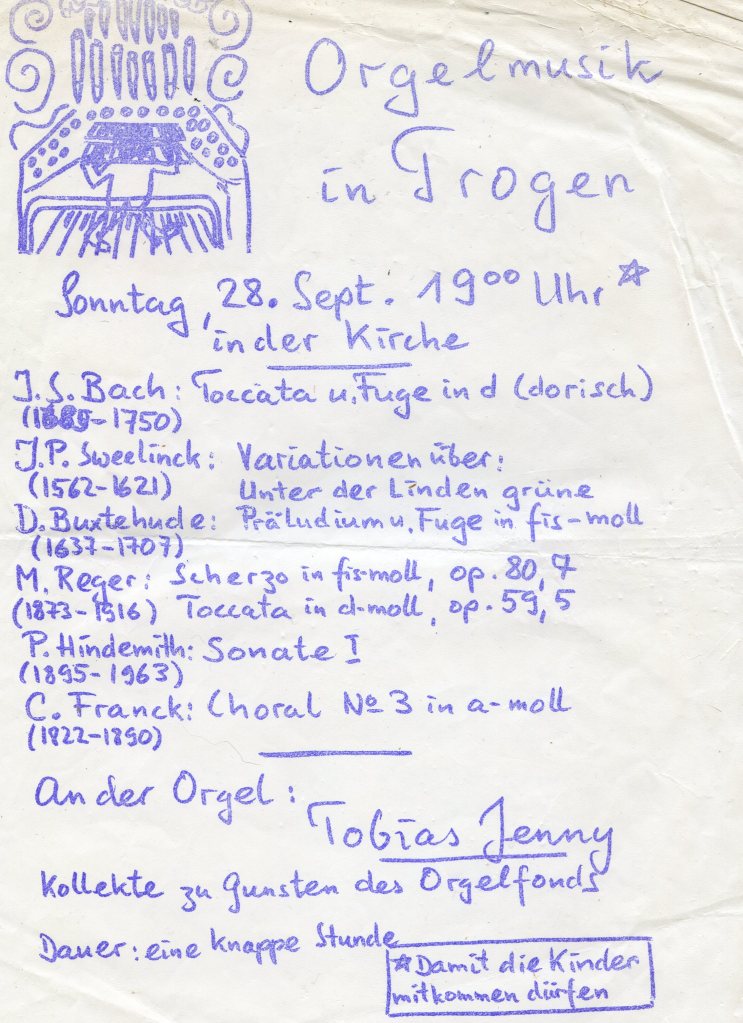 Orgelmusik
in Trogen
Sonntag, 28. Sept. 19⁰⁰ Uhr ☆
in der Kirche
J. S. Bach: Toccata u. Fuge in d (dorisch)
(1685-1750)
J. P. Sweelinck: Variationen über:
(1562-1621) Unter der Linden grüne
D. Buxtehude: Präludium u. Fuge in fis-moll
(1637-1707)
M. Reger: Scherzo in fis-moll, op. 80, 7
(1873-1916) Toccata in d-moll, op. 59, 5
P. Hindemith: Sonate I
(1895-1963)
C. Franck: Choral No 3 in a-moll
(1822-1890)
An der Orgel:
Tobias Jenny
Kollekte zu Gunsten des Orgelfonds
Dauer: eine knappe Stunde
☆ Damit die Kinder
mitkommen dürfen